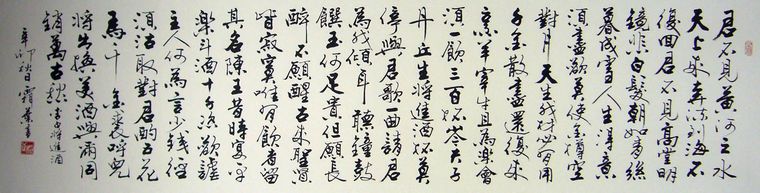 君不見黃河之水
天上來奔流到海不
復回君不見高堂明
鏡悲白髮朝如青絲
暮成雪人生得意
須盡歡莫使金樽空
對月天生我材必有用
千金散盡還復來
烹羊宰牛且為樂會
須一飲三百杯岑夫子
丹丘生將進酒杯莫
停與君歌一曲請君
為我傾耳聽鐘鼓
饌玉何足貴但願長
醉不願醒古來聖賢
皆寂寞唯有飲者留
其名陳王昔時宴平
樂斗酒十千恣歡謔
主人何為言少錢徑
須沽取對君酌五花
馬千金裘呼兒
將出換美酒與爾同
銷萬古愁 李白將進酒
辛卯秋日霜葉書